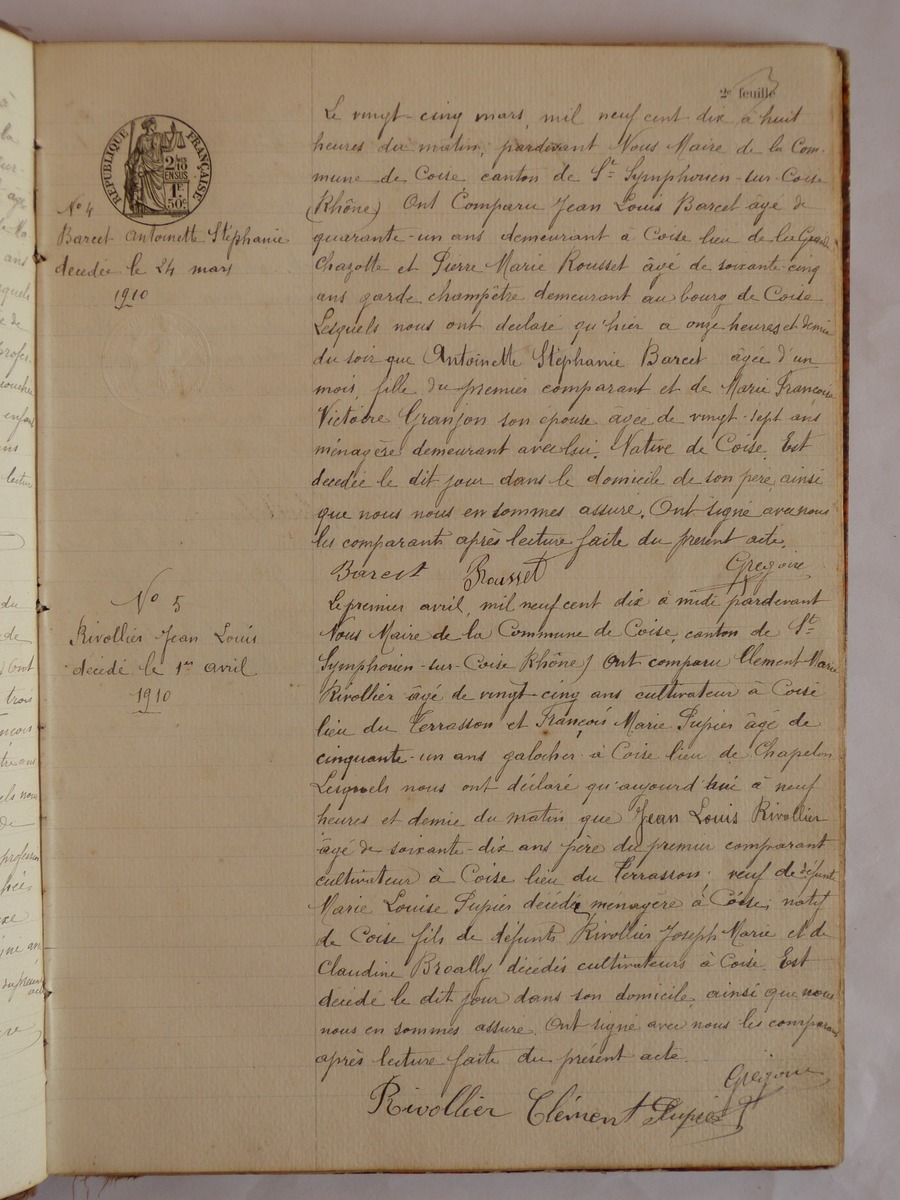 2e feuille
RÉPUBLIQUE FRANÇAISE
2/10
EN SUS
1F.
50c
No 4
Barcet Antoinette Stéphanie
decedée le 24 mars
1910
Le vingt-cinq mars, mil neuf cent dix à huit
heures du matin, pardevant Nous Maire de la Com-
mune de Coise canton de St Symphorien-sur-Coise
(Rhône) Ont Comparu Jean Louis Barcet âgé de
quarante-un ans demeurant à Coise lieu de la
Chazotte et Pierre Marie Rousset âgé de soixante-cinq
ans garde champêtre demeurant au bourg de Coise
Lesquels nous ont déclaré qu'hier a onze heures et demie
du soir que Antoinette Stéphanie Barcet âgée d'un
mois, fille du premier comparant et de Marie Françoise
Victoire Granjon son épouse agée de vingt-sept ans
ménagère demeurant avec lui. Native de Coise. Est
decedée le dit jour dans le domicile de son père, ainsi
que nous nous en sommes assuré. Ont signé avec nous
les comparants après lecture faite du présent acte.
Barcet Rousset Gregoire
No 5
Rivollier Jean Louis
décédé le 1er avril
1910
Le premier avril, mil neuf cent dix à midi pardevant
Nous Maire de la Commune de Coise, canton de St
Symphorien-sur-Coise Rhône) Ont comparu Clement-Marie
Rivollier âgé de vingt-cinq ans cultivateur à Coise
lieu du Terrasson et François Marie Pupier âgé de
cinquante-un ans galocher à Coise lieu de Chapelon
Lesquels nous ont déclaré qu'aujourd'hui à neuf
heures et demie du matin que Jean Louis Rivollier
âgé de soixante-dix ans père du premier comparant
cultivateur à Coise lieu du Terrasson, veuf de défunte
Marie Louise Pupier décédée ménagère à Coise, natif
de Coise fils de défunts Rivollier Joseph Marie et de
Claudine Broally décédés cultivateurs à Coise. Est
décédé le dit jour dans son domicile, ainsi que nous
nous en sommes assuré. Ont signé avec nous les comparants
après lecture faite du présent acte.
Grégoire
Rivollier Clément Pupier